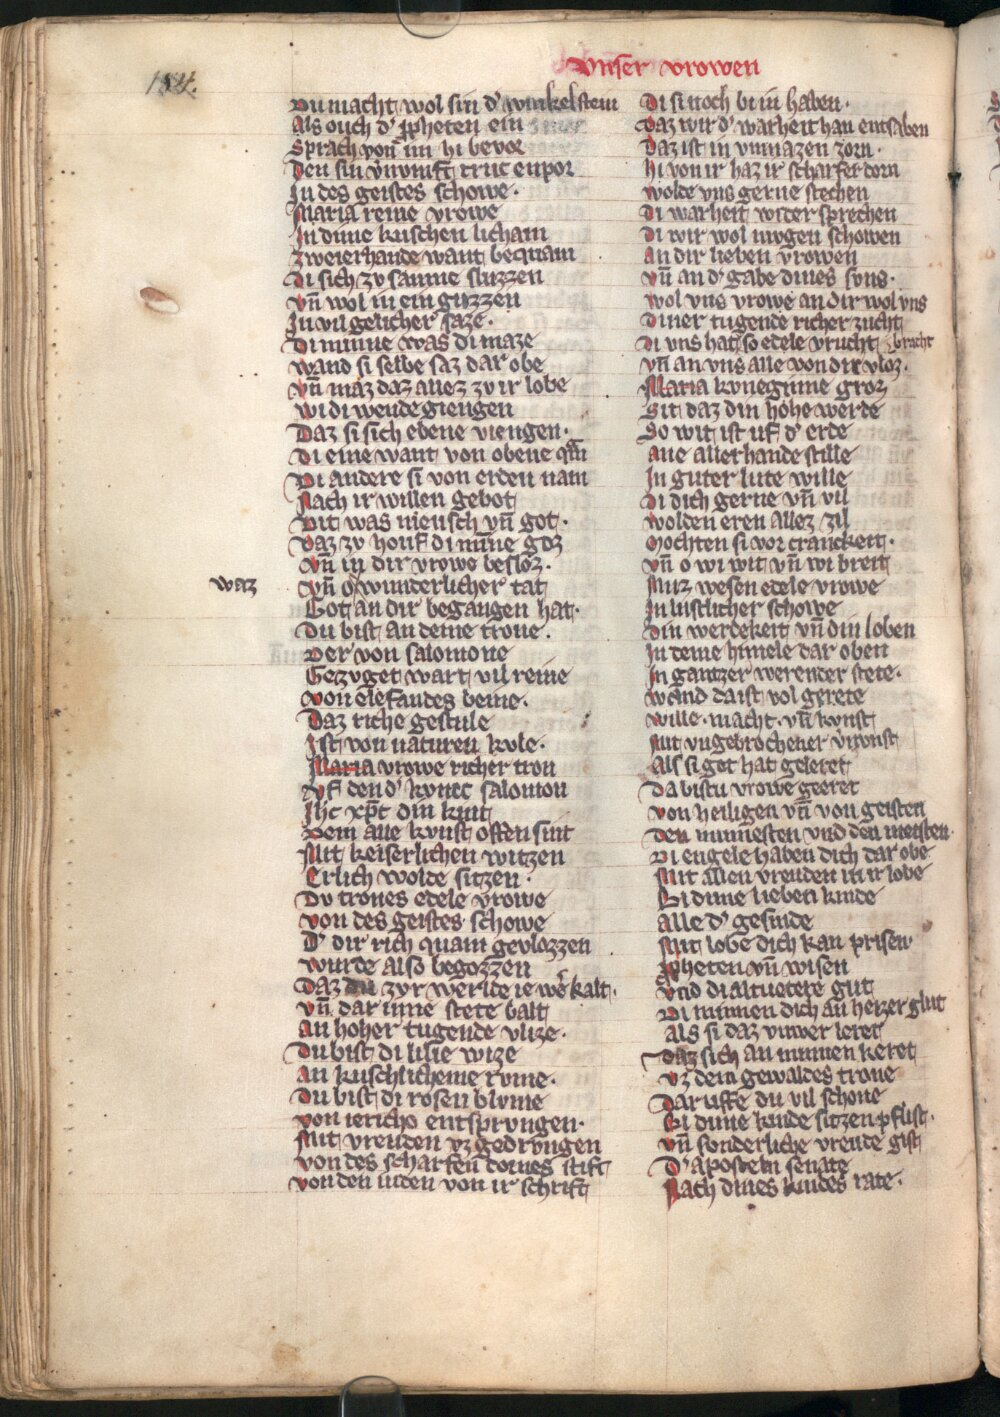 184.
vnser vrowen
Du macht wol sin d' winkelstein
Als ouch d' ppheten ein
Sprach von im hi bevor
Den sin v̄nvmft truc enpor
In des geistes schowe.
Maria reine vrowe
In dime kuschen licham
Zweierhande want bequam
Di sich zv samne sluzzen
vn̄ wol in ein guzzen
In vil gelicher saze.
Di minne was di maze
wand si selbe saz dar obe
vn̄ maz daz allez zv ir lobe
wi di wende giengen
Daz si sich ebene viengen.
Di eine want von obene qā
Di andere si von erden nam
Nach ir willen gebot
Dit was mensch vn̄ got.
Daz zv houf di minne goz
vn̄ in dir vrowe besloz.
waz
vn̄ o wunderlicher tat
Got an dir begangen hat.
Du bist an deme trone.
Der von salomone
Gezvget wart vil reine
von elefandes beine.
Daz riche gestule
Ist von naturen kvle.
Maria vrowe richer tron
vf den d' kvnec salomon
Ihc xp̄c din kint
Dem alle kvnst offen sint
Mit keiserlichen witzen
Erlich wolde sitzen.
Dv trones edele vrowe
von des geistes schowe
D' dir rich quam gevlozzen
wurde also begozzen
Daz du zvr werlde ie wē kalt.
vn̄ dar inne stete balt
an hoher tugende vlize.
Du bist di lilie wize
an kuschlicheme rvme.
Du bist di rosen blvme
von iericho entsprvngen.
Mit vreuden vz gedrvngen
von des scharfen dornes stift
von den iuden von ir schrift
Di si noch bi in haben.
Daz wir d' warheit han entsaben
Daz ist in vnmazen zorn.
hi von ir haz ir scharfer dorn
wolde vns gerne stechen
di warheit wider sprechen
Di wir wol mvgen schowen
an dir lieben vrowen
vn̄ an d' gabe dines svns.
wol vns vrowe an dir wol vns
Diner tugende richer zucht
Di vns hat so edele vrucht bracht
vn̄ an vns alle von dir vloz.
Maria kvneginne groz
Sit daz din hohe werde
So wit ist uf d' erde
ane allerhande stille
In guter lute wille
Di dich gerne vn̄ vil
wolden eren allez zil
Mochten si vor cranckeit.
vn̄ o wi wit vn̄ wi breit
Muz wesen edele vrowe
In lustlicher schowe
Din werdekeit vn̄ din loben
In deme himele dar oben
In gantzer werender stete.
wand da ist vol gerete
wille. macht. vn̄ kvnst
Mit vngebrochener vnvnst
Als si got hat geleret
Da bistu vrowe geeret
von heiligen vn̄ von geisten
Den minnesten vnd den meisten.
Di engele haben dich dar obe
Mit allen vreuden in ir lobe
Bi dime lieben kinde
Alle d' gesinde
Mit lobe dich kan prisen
Ppheten vn̄ wisen
vnd di altuetere gut
Di minnen dich an herzer glut
Als si daz vuwer leret
Daz sich an minnen keret
vz dem gewaldes trone
Dar uffe du vil schone
Bi dime kinde sitzen pflist.
vn̄ sonderliche vreude gist
D' aposteln senate
Nach dines kindes rate.